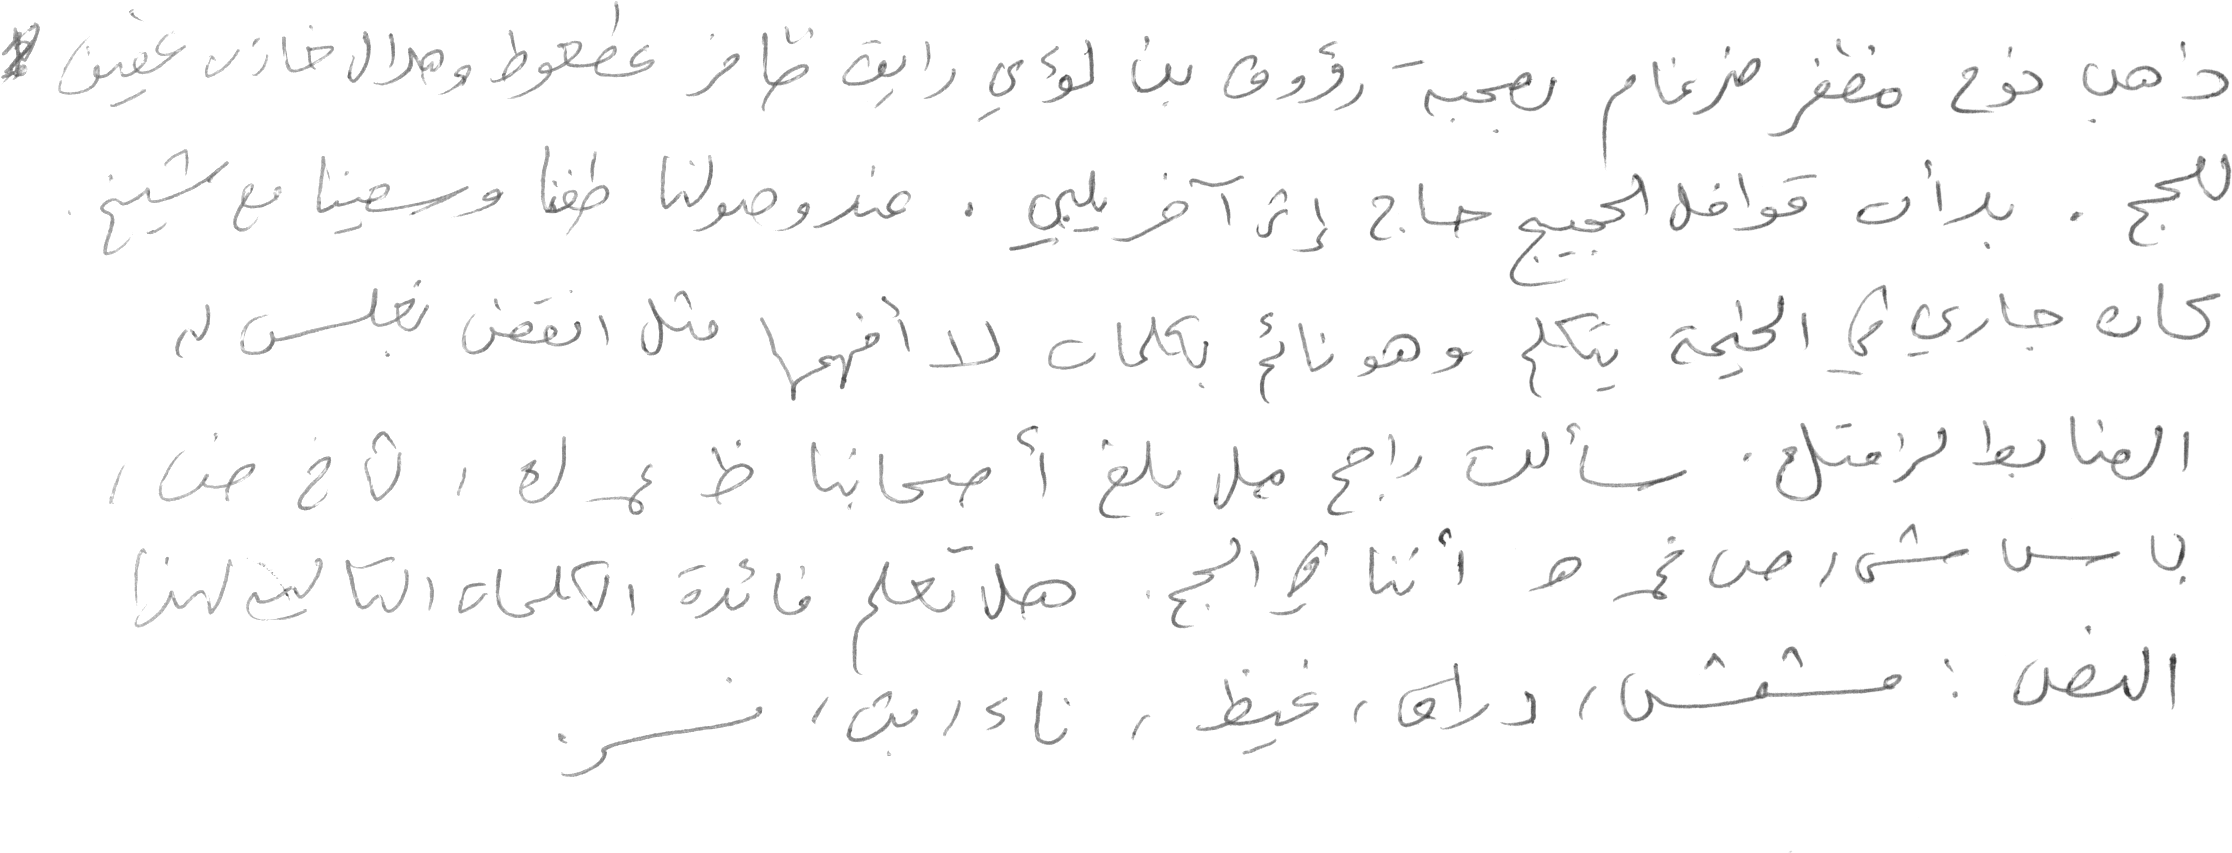 ذهب نوح مظفر ضرغام بصحبة رؤوف بن لؤي رايق ظافر عطعوط وهلال خازن عفيف
للحج . بدأت قوافل الحجيج حاج إثر آخر يلبي . عند وصولنا طفنا وسعينا مع شيخ .
كان جاري في الخيمة يتكلم وهو نائم بكلمات لا أفهمها مثل انقض نجلس له
الضابط لزامتلع . سألت راجح هل بلغ أصحابنا ظ عمـ لك ، لأخ ض ،
با س ش ، ص غمـ ه أننا في الحج . هل تعلم فائدة الكلمات التالية لهذا
النص : مشمش ، دراق ، غيظ ، ناء ، بث ، نسز